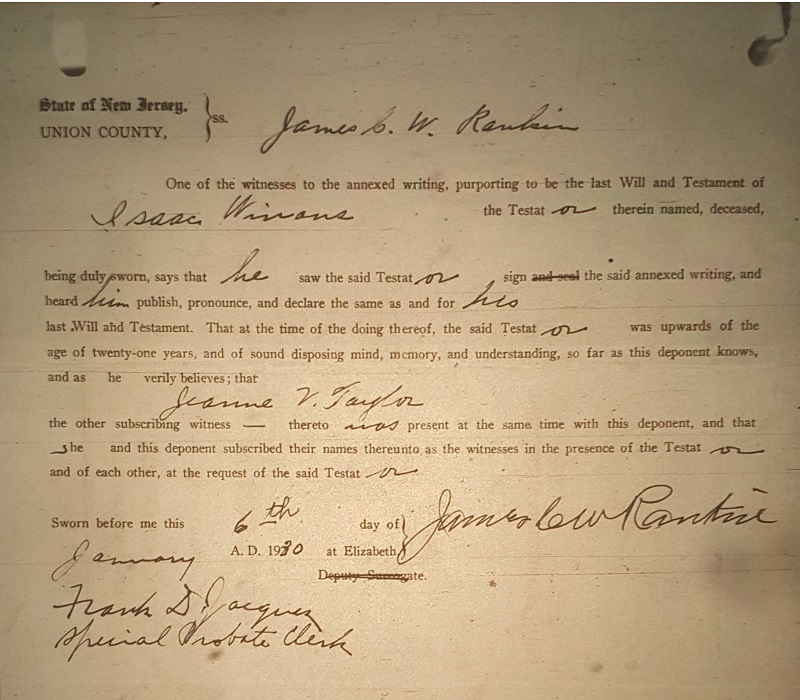 State of New Jersey, } ss. James C. W. Rankin
UNION COUNTY,
One of the witnesses to the annexed writing, purporting to be the last Will and Testament of
Isaac Winans the Testat or therein named, deceased,
being duly sworn, says that he saw the said Testat or sign and seal the said annexed writing, and
heard him publish, pronounce, and declare the same as and for his
last Will and Testament. That at the time of the doing thereof, the said Testat or was upwards of the
age of twenty-one years, and of sound disposing mind, memory, and understanding, so far as this deponent knows,
and as he verily believes; that
Jeanne V. Taylor
the other subscribing witness — thereto was present at the same time with this deponent, and that
She and this deponent subscribed their names thereunto as the witnesses in the presence of the Testat or
and of each other, at the request of the said Testat or
Sworn before me this 6th day of } James C W Rankin
January A. D. 1930 at Elizabeth
Deputy Surrogate.
Frank D. Jacques
Special Probate Clerk